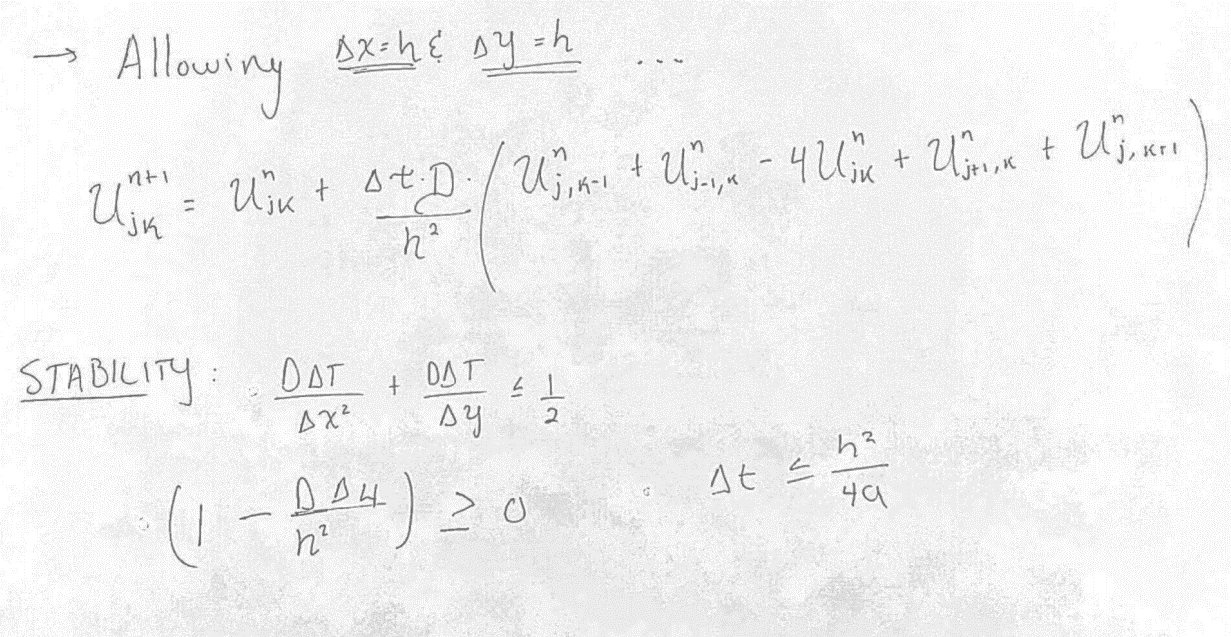 → Allowing Δx=h & Δy=h ...
U_{jk}^{n+1} = U_{jk}^n + \frac{Δt·D·}{h²} ( U_{j,k-1}^n + U_{j-1,k}^n - 4U_{jk}^n + U_{j+1,k}^n + U_{j,k+1}^n )
STABILITY: · \frac{DΔT}{Δx²} + \frac{DΔT}{Δy} ≤ \frac{1}{2}
· (1 - \frac{DΔ4}{h²}) ≥ 0 · Δt ≤ \frac{h²}{4a}